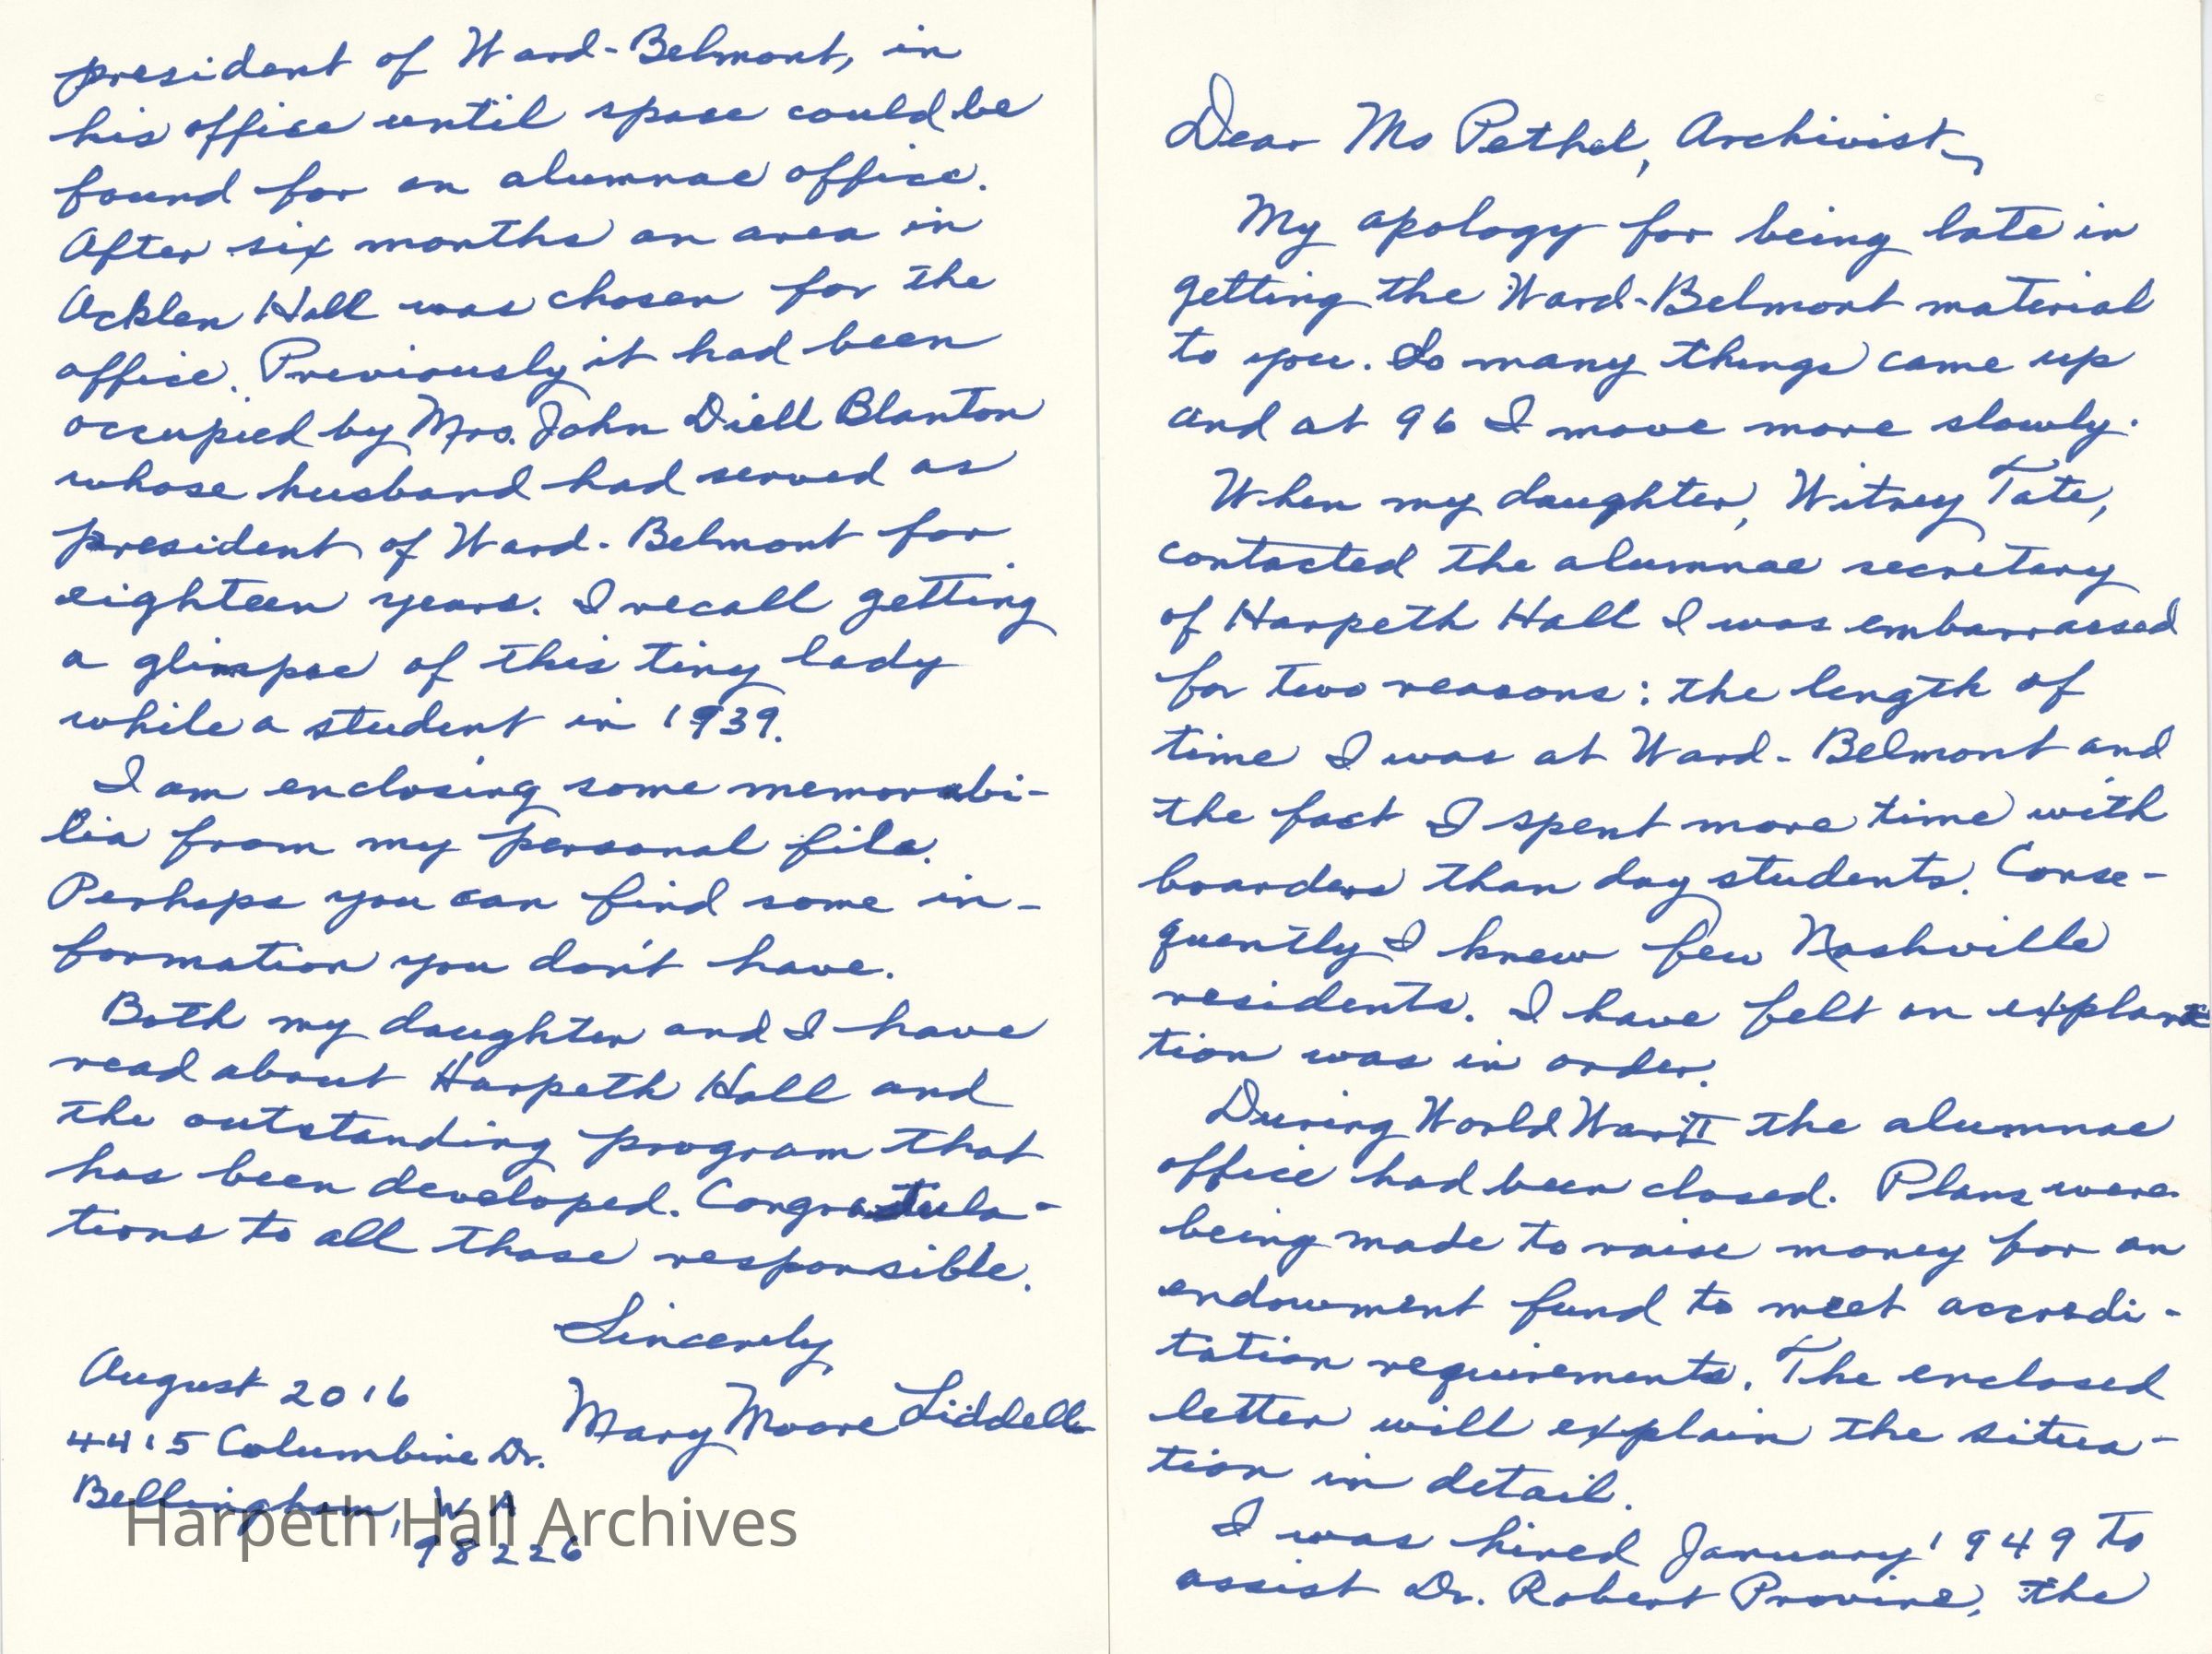 Dear Ms Pethel, Archivist,
My apology for being late in
getting the Ward-Belmont material
to you. So many things came up
and at 96 I move more slowly.
When my daughter, Witney Tate,
contacted the alumnae secretary
of Harpeth Hall I was embarrassed
for two reasons: the length of
time I was at Ward-Belmont and
the fact I spent more time with
boarders than day students. Conse-
quently I knew few Nashville
residents. I have felt an explana
tion was in order.
During World War II the alumnae
office had been closed. Plans were
being made to raise money for an
endowment fund to meet accredi-
tation requirements. The enclosed
letter will explain the situa-
tion in detail.
I was hired January 1949 to
assist Dr. Robert Provine, the
president of Ward-Belmont, in
his office until space could be
found for an alumnae office.
After six months an area in
Acklen Hall was chosen for the
office. Previously it had been
occupied by Mrs. John Diell Blanton
whose husband had served as
president of Ward-Belmont for
eighteen years. I recall getting
a glimpse of this tiny lady
while a student in 1939.
I am enclosing some memorabi-
lia from my personal file.
Perhaps you can find some in-
formation you don't have.
Both my daughter and I have
read about Harpeth Hall and
the outstanding program that
has been developed. Congratula-
tions to all those responsible.
Sincerely,
Mary Moore Liddell
August 2016
4415 Columbine Dr.
Bellingham, WA
98226
Harpeth Hall Archives